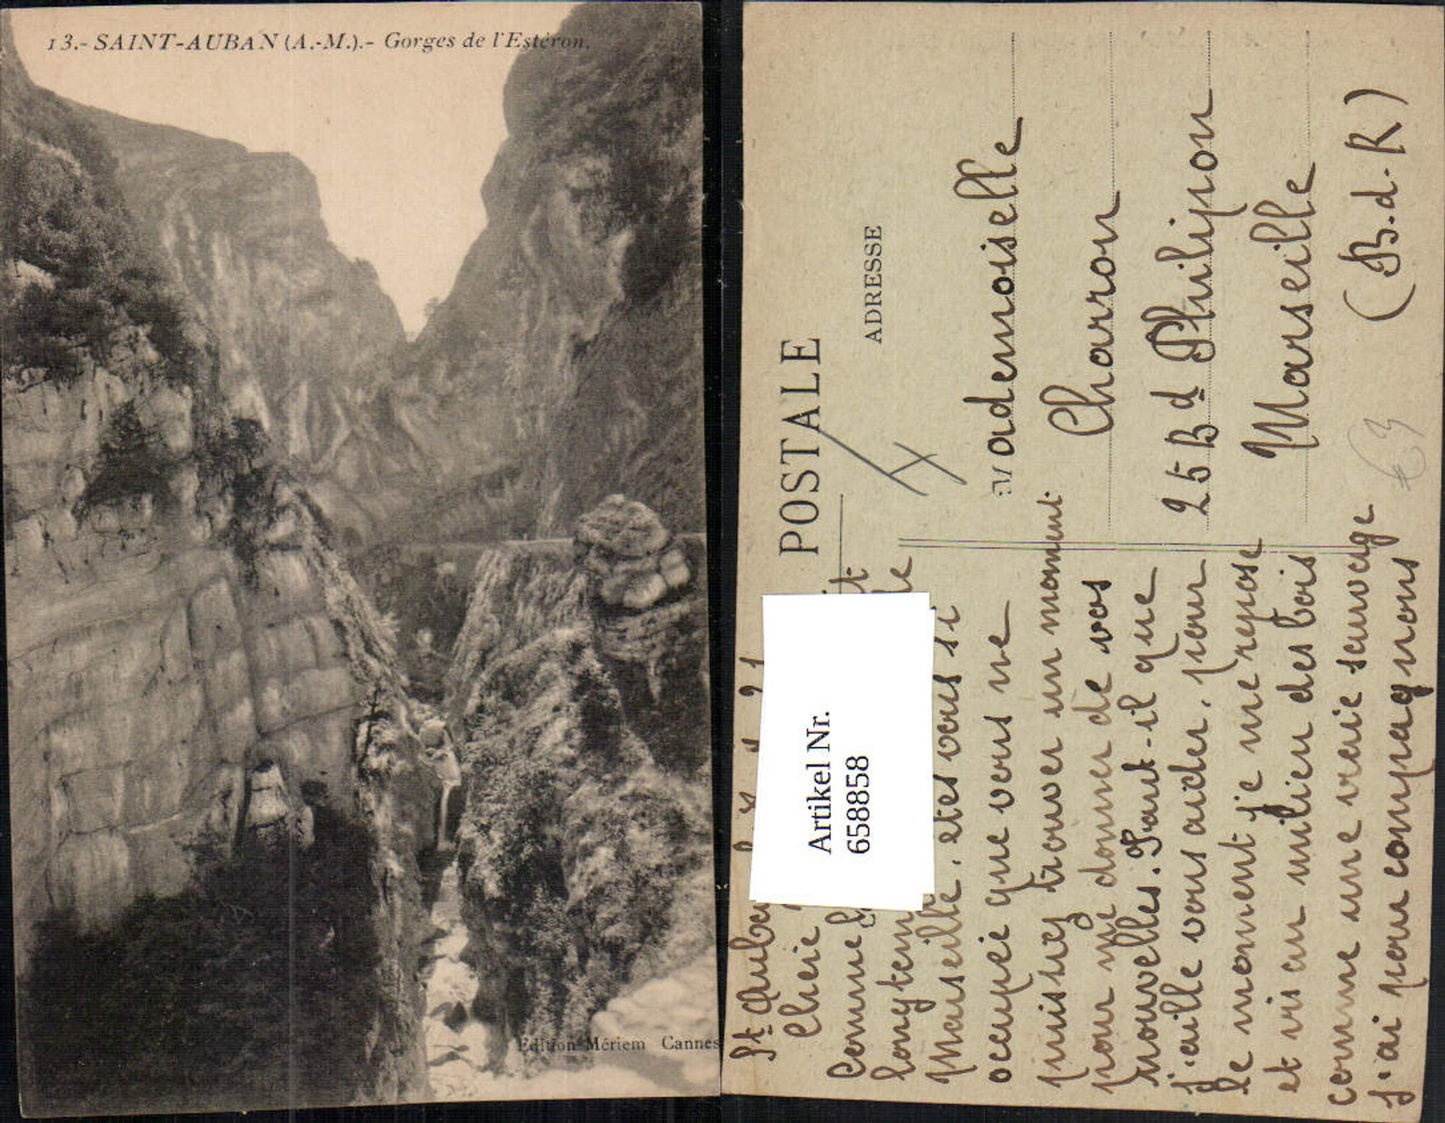 13.- SAINT-AUBAN (A.-M.).- Gorges de l'Estéron.
Edition Mériem Cannes
POSTALE
ADRESSE
Mademoiselle
Charron
25 Bd Philipon
Marseille
(B.d.R)
€3
Artikel Nr.
658858
St Auban
Chère
Comme
longtem
Marseille, êtes vous si
occupée que vous ne
puissiez trouver un moment
pour me donner de vos
nouvelles. Faut-il que
j'aille vous aider, pour
le moment je me repose
et vis au milieu des bois
comme une vraie sauvage
j'ai pour compagnons